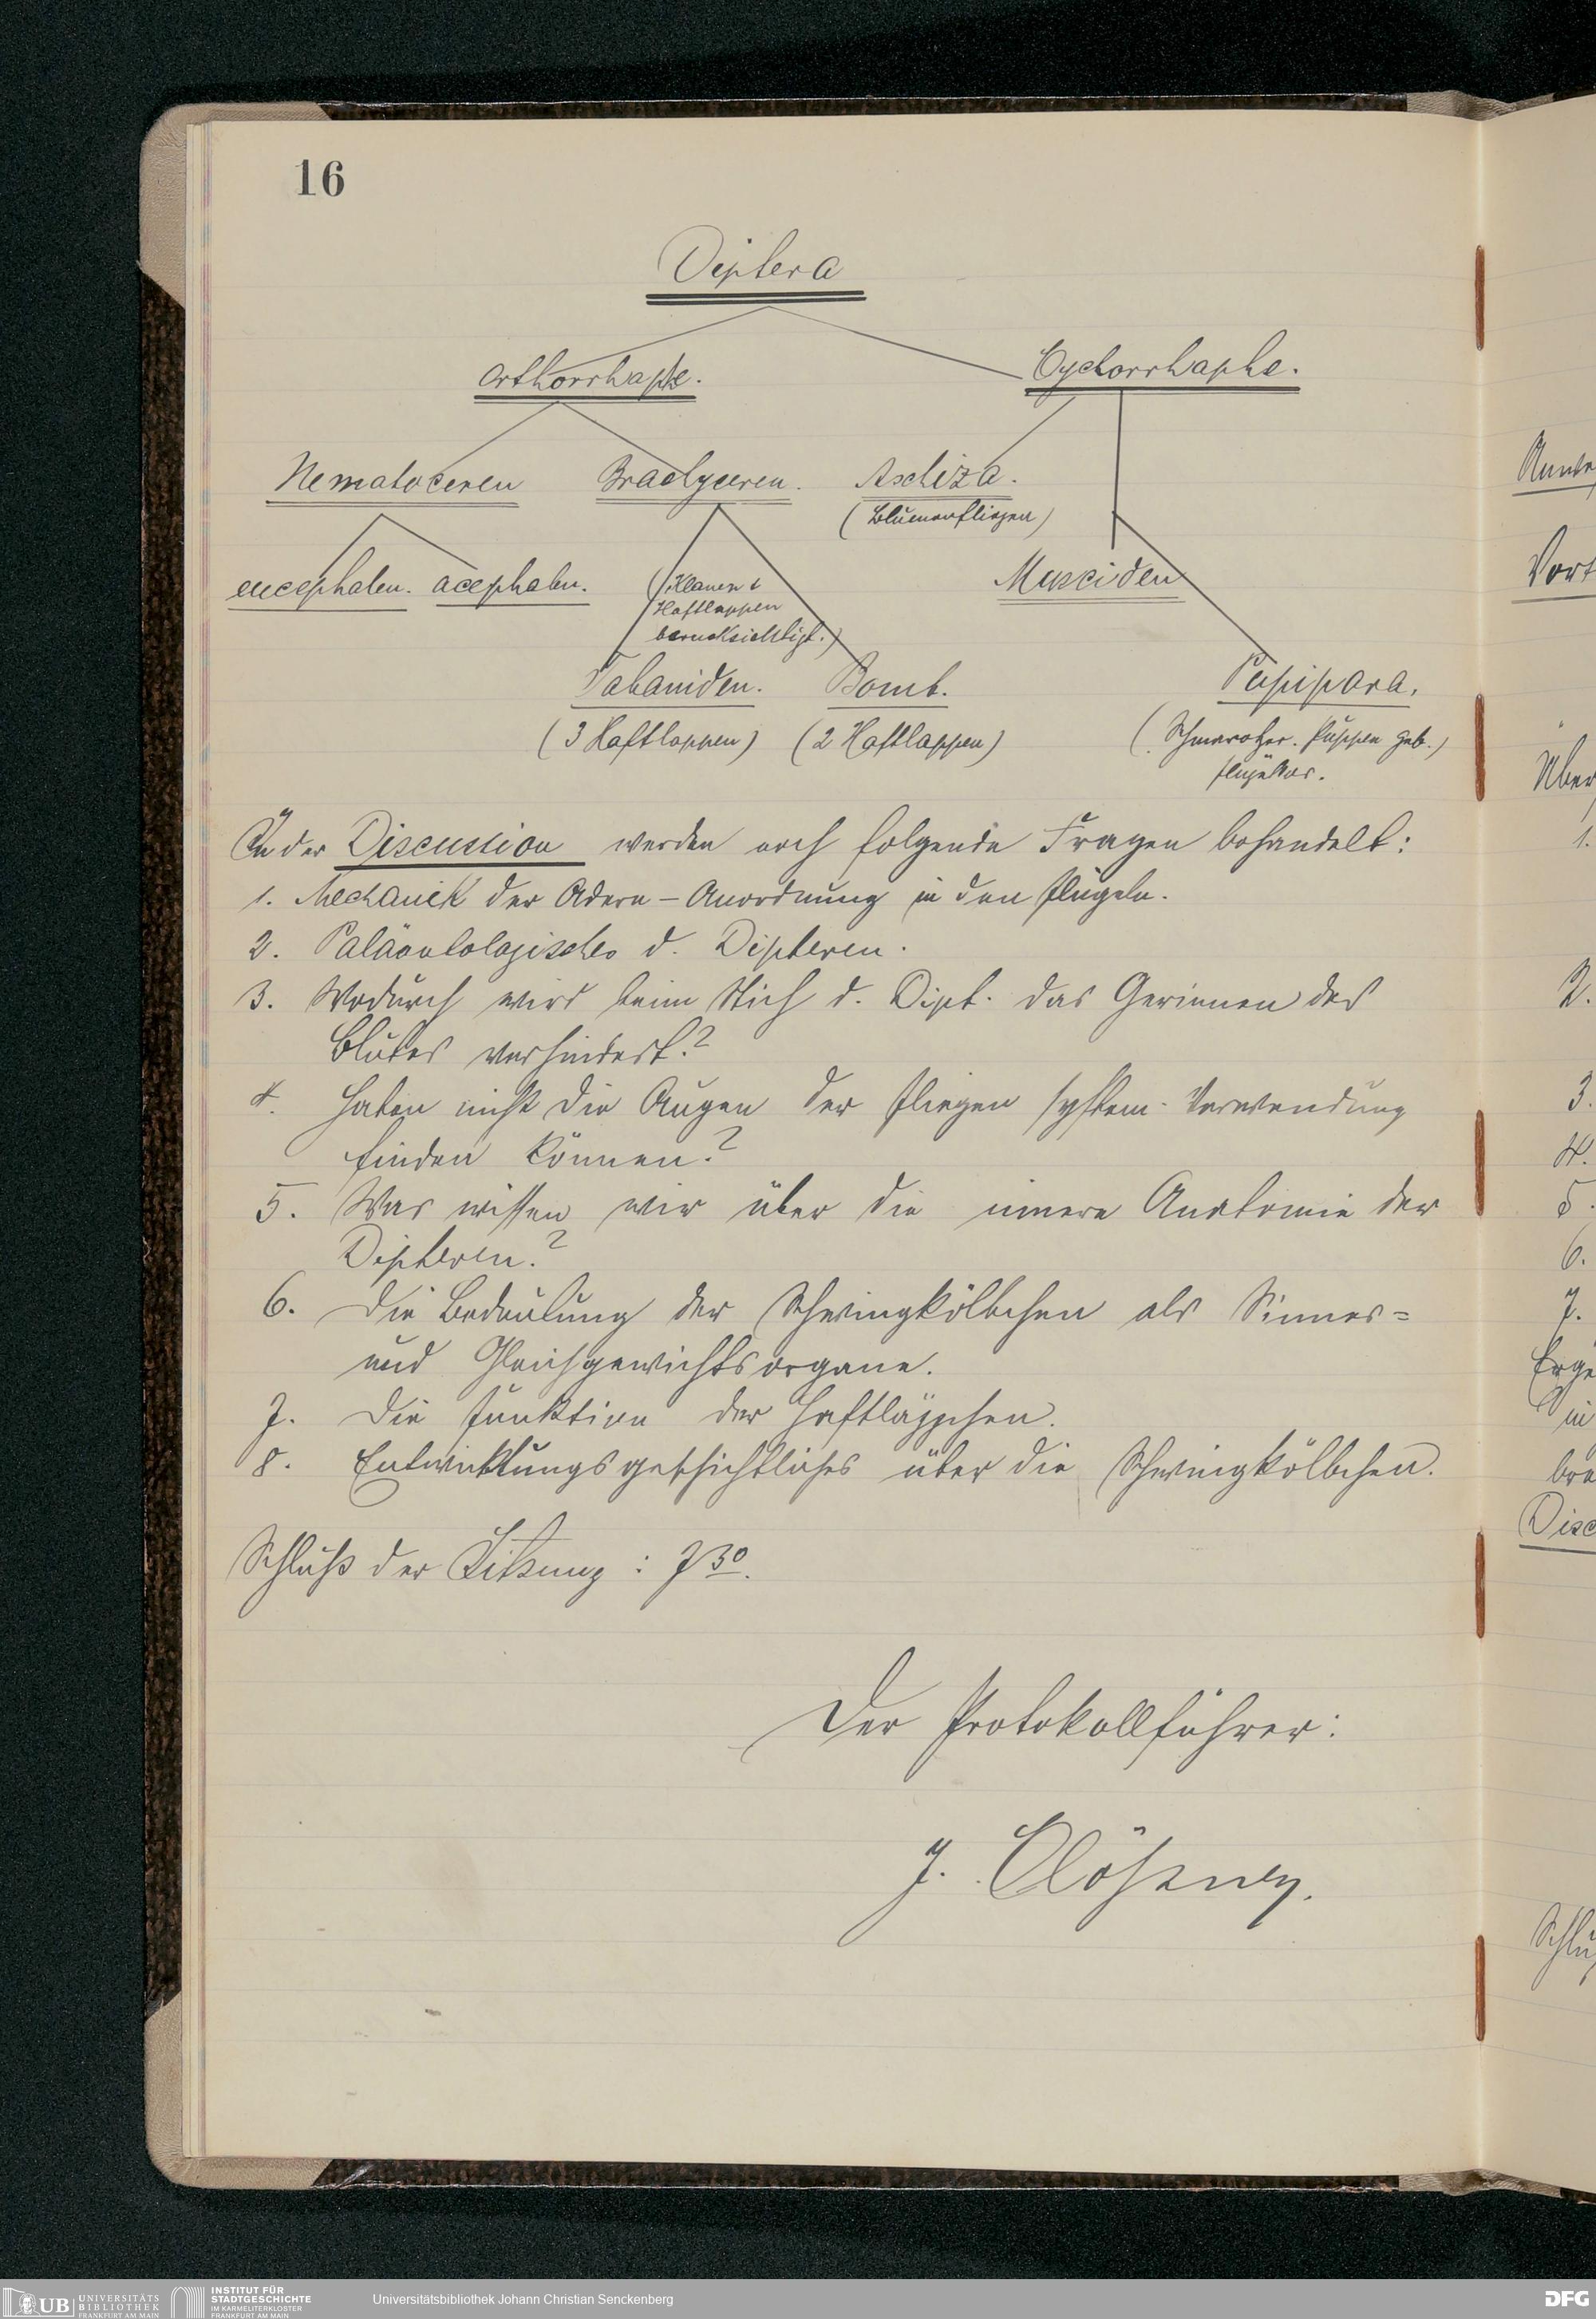 16
Diptera
Orthorrhaphe.
Cyclorrhaphe.
Nematoceren
Brachyceren.
Aschiza.
(Blumenfliegen)
eucephalen. acephalen.
(Klauen &
Haftlappen
berucksichtigt.)
Musciden
Tabaniden. Bomb.
Pupipara.
(3 Haftlappen) (2 Haftlappen)
(Schmarotzer. Puppen geb.)
flügellos.
In der Discussion werden noch folgende Fragen behandelt:
1. Mechanik der Adern-Anordnung in den Flügeln.
2. Paläontologisches d. Dipteren.
3. Wodurch wird beim Stich d. Dipt. das Gerinnen des
Blutes verhindert?
4. Haben nicht die Augen der Fliegen system. Verwendung
finden können?
5. Was wissen wir über die innere Anatomie der
Dipteren?
6. Die Bedeutung der Schwingkölbchen als Sinnes=
und Gleichgewichtsorgane.
7. Die Funktion der Haftläppchen.
8. Entwicklungsgeschichtliches über die Schwingkölbchen.
Schluß der Sitzung: 7 30.
Der Protokollführer:
J.
Vort
Über
1.
2.
3.
4.
5.
6.
7.
in
Disc
Schlu
UB UNIVERSITÄTS
BIBLIOTHEK
FRANKFURT AM MAIN
INSTITUT FÜR
STADTGESCHICHTE
IM KARMELITERKLOSTER
FRANKFURT AM MAIN
Universitätsbibliothek Johann Christian Senckenberg
DFG